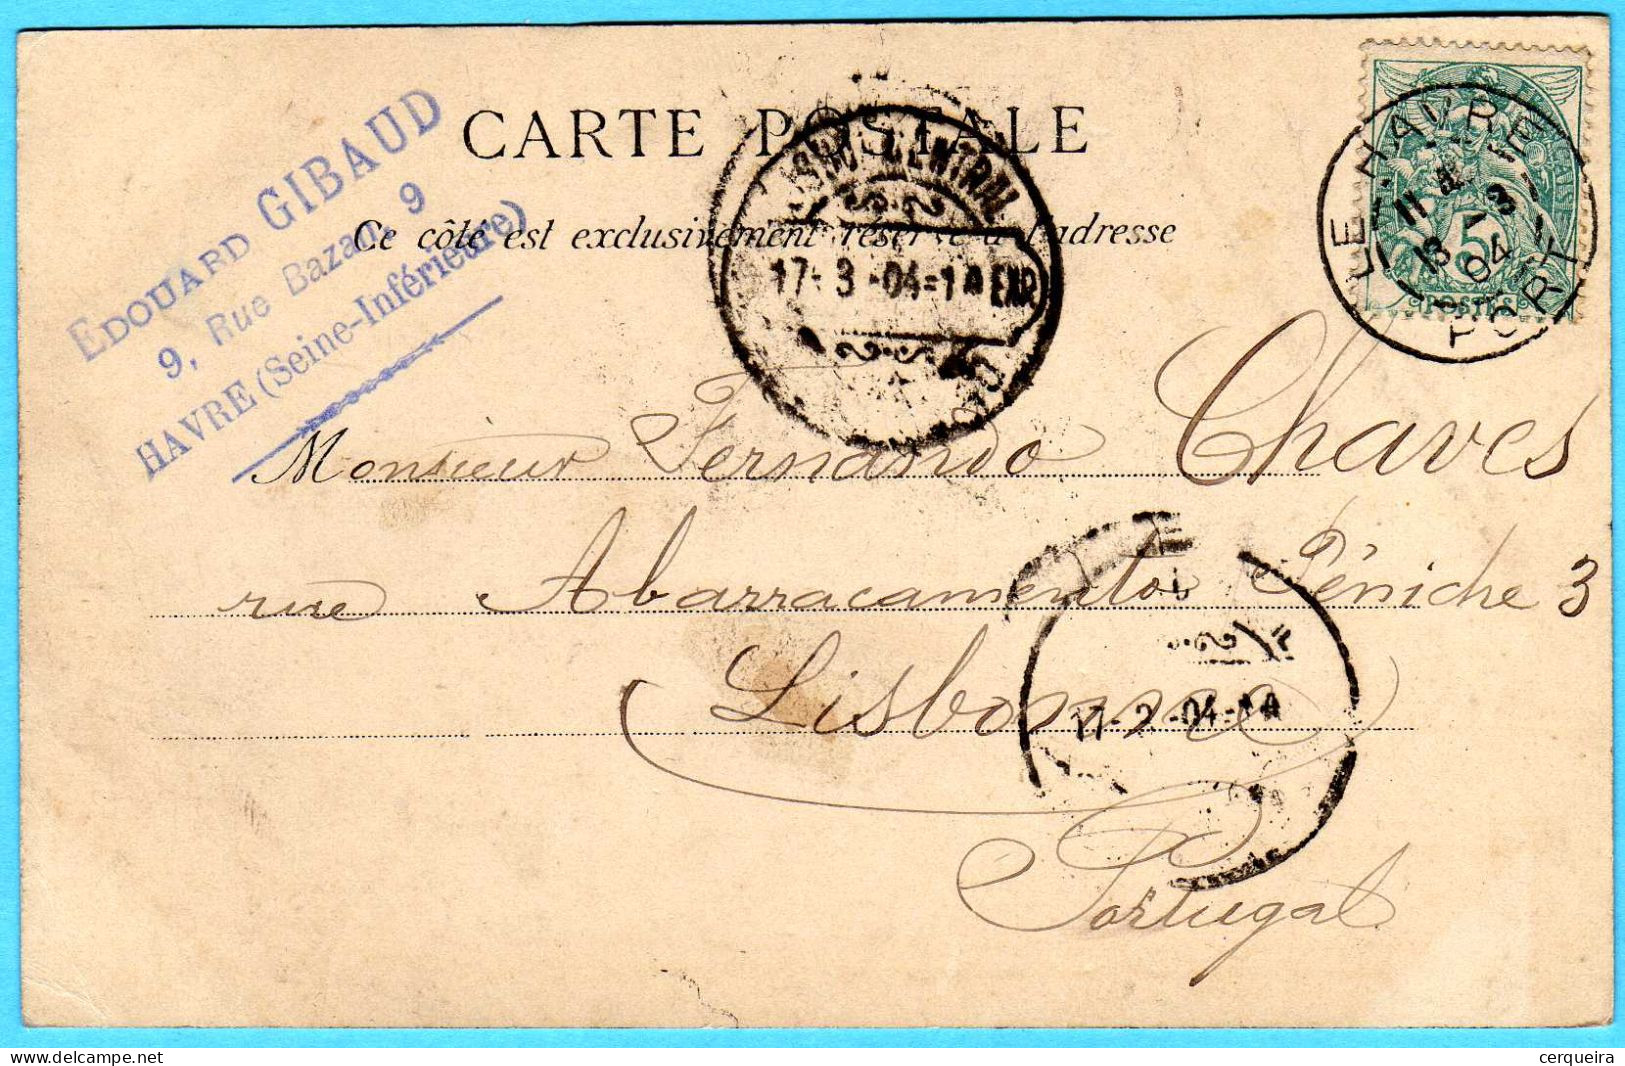 CARTE POSTALE
Ce côté est exclusivement réservé à l'adresse
EDOUARD GIBAUD
9, Rue Bazan, 9
HAVRE (Seine-Inférieure)
CENTRAL
17-3-04=1A EXP
LE HAVRE
11 3
13 04
PORT
5
POSTES
Monsieur Fernando Chaves
rue Abarracamentos Péniche 3
Lisbonne
17- -04=1A
Portugal
www.delcampe.net
cerqueira